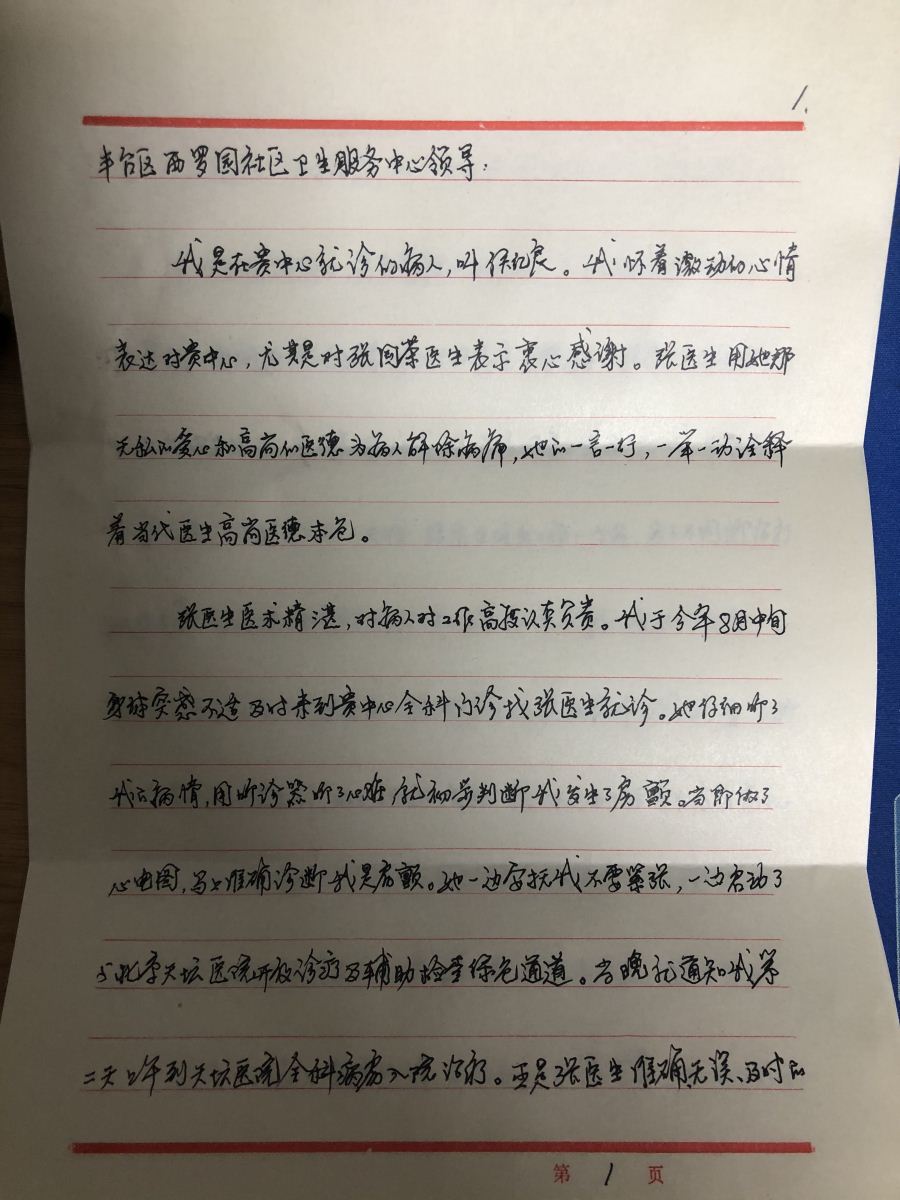 1.
丰台区西罗园社区卫生服务中心领导:
我是在贵中心就诊的病人,叫。我怀着激动的心情
表达对贵中心,尤其是对张国荣医生表示衷心感谢。张医生用她那
无私的爱心和高尚的医德为病人解除病痛,她的一言一行,一举一动诠释
着当代医生高尚医德本色。
张医生医术精湛,对病人对工作高度认真负责。我于今年8月中旬
身体突感不适及时来到贵中心全科门诊找张医生就诊。她仔细听了
我的病情,用听诊器听了心脏就初步判断我发生了房颤。当即做了
心电图,马上准确诊断我是房颤。她一边安抚我不要紧张,一边启动了
与北京天坛医院开放诊疗及辅助检查绿色通道。当晚就通知我第
二天上午到天坛医院全科病房入院治疗。正是张医生准确无误、及时的
第 1 页